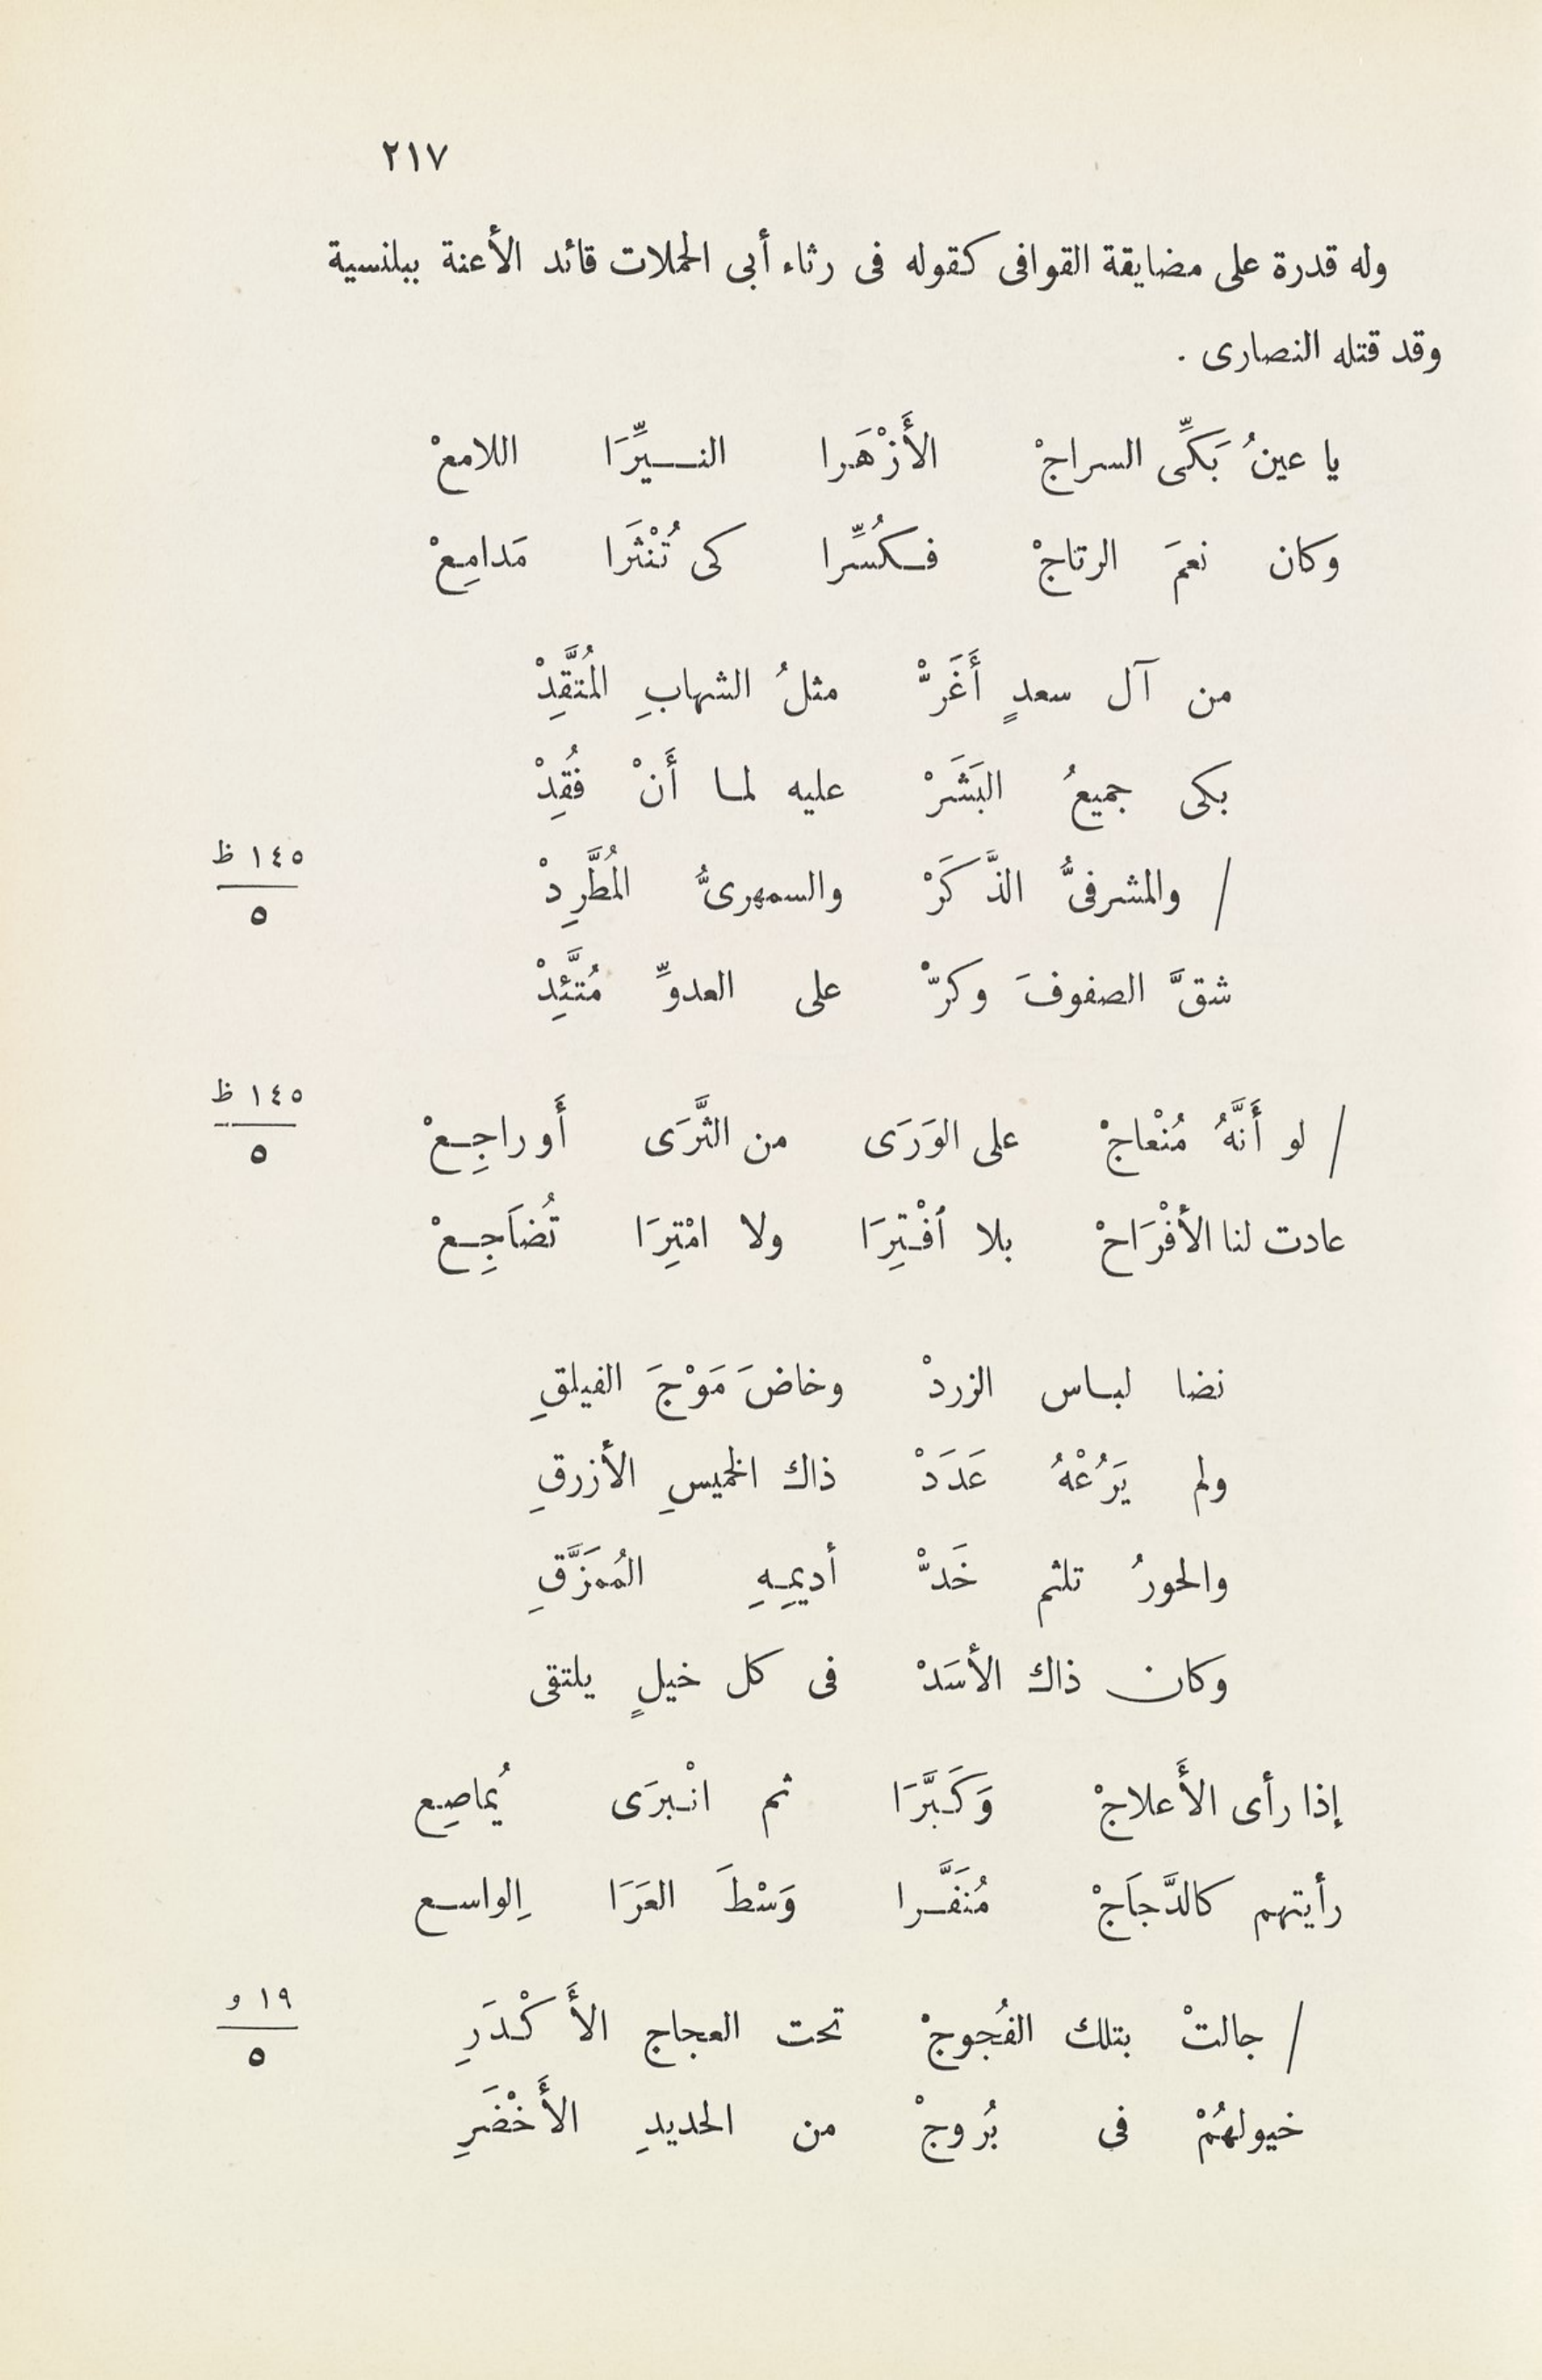 ٢١٧
وله قدرة على مضايقة القوافى كقوله فى رثاء أبى الحملات قائد الأعنة ببلنسية
وقد قتله النصارى .
يا عينُ بَكِّى السراجْ الأَزْهَرا النــيِّرَا اللامعْ
وكان نعمَ الرتاجْ فـكُسِّرا كى تُنْثَرا مَدامِعْ
من آل سعدٍ أَغَرّْ مثلُ الشهابِ المُتَّقِدْ
بكى جميعُ البَشَرْ عليه لمـا أَنْ فُقِدْ
/ والمشرفىُّ الذَّكَرْ والسمهرىُّ المُطَّرِدْ
١٤٥ ظ
٥
شقَّ الصفوفَ وكرّْ على العدوِّ مُتَّئِدْ
/ لو أَنَّهُ مُنْعاجْ على الوَرَى من الثَّرَى أَو راجِـعْ
١٤٥ ظ
٥
عادت لنا الأفْرَاحْ بلا ٱفْـتِرَا ولا امْتِرَا تُضاَجِـعْ
نضا لبـاس الزردْ وخاضَ مَوْجَ الفيلقِ
ولم يَرُعْهُ عَدَدْ ذاك الخميسِ الأزرقِ
والحورُ تلثم خَدّْ أديمِـهِ المُمَزَّقِ
وكان ذاك الأسَدْ فى كل خيلٍ يلتقى
إذا رأى الأَعلاجْ وَكَـبَّرَا ثم انْـبرَى يُماصِع
رأيتهم كالدَّجاَجْ مُنَفَّـرا وَسْطَ العَرَا اِلواسـع
/ جالتْ بتلك الفُجوجْ تحت العجاج الأَكْـدَرِ
١٩ و
٥
خيولهُمْ فى بُروجْ من الحديدِ الأَخْضَرِ